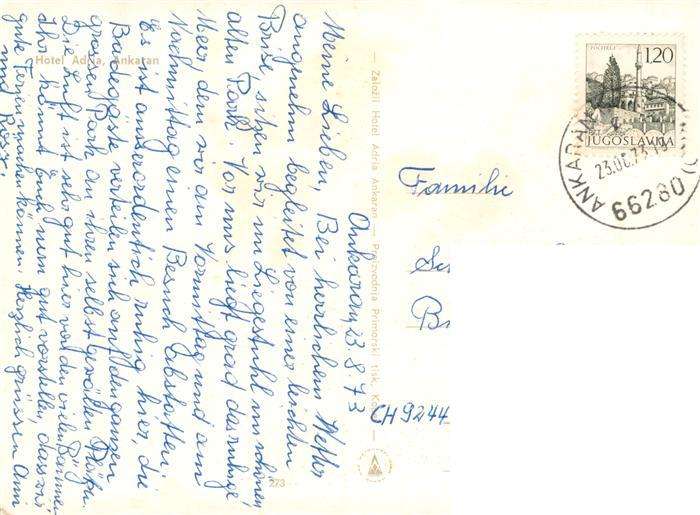 Ankaran, 23.8.73
Meine Lieben, Bei herrlichem Wetter
angenehm begleitet von einer leichten
Brise, sitzen wir im Liegestuhl im schönen
alten Park. Vor uns liegt grad das ruhige
Meer, dem wir am Vormittag und am
Nachmittag einen Besuch abstatten.
Es ist ausserordentlich ruhig hier, die
Badegäste verteilen sich auf den ganzen
grossen Park an ihren selbst gewählten
Die Luft ist sehr gut hier von den vielen Bäumen
Ihr könnt Euch nun gut vorstellen, dass wir
gute Ferien machen können. Herzlich grüssen
und
Hotel Adria, Ankaran
— Založil Hotel Adria Ankaran — Proizvodnja Primorski tisk,
273
POČITELJ
1,20
JUGOSLAVIJA
ANKARAN
23.08.73
66280
Familie
CH 9244